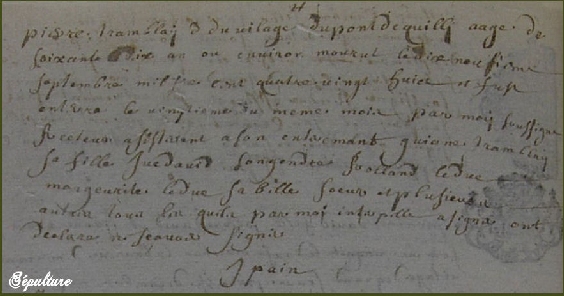 pierre tramblaij d du vilage du pont de quilli aage de
soixante dix an ou environ mourut le dix neufieme
septembre mil sixe cent quatre vingt huict et fut
enterre le vingtieme du meme mois par moij soussigne
Recteur assistant a son enterremant guionne tramblaij
sa fille Jue david son gendre Rolland leduc
margeurite leduc sa bille soeur et plusieurs
autres tous les quils par moi interpelle a signe ont
declare ne scavoir signe
J pain
Sépulture